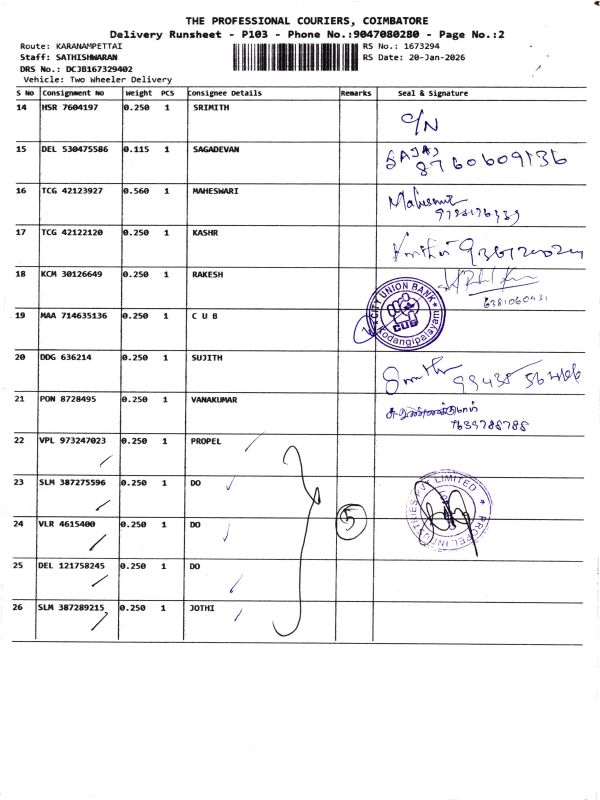 THE PROFESSIONAL COURIERS, COIMBATORE
Delivery Runsheet - P103 - Phone No.:9047080280 - Page No.:2
Route: KARANAMPETTAI RS No.: 1673294
Staff: SATHISHWARAN RS Date: 20-Jan-2026
DRS No.: DCJB167329402
Vehicle: Two Wheeler Delivery
S No Consignment No Weight PCS Consignee Details Remarks Seal & Signature
14 HSR 7604197 0.250 1 SRIMITH C/N
15 DEL 530475586 0.115 1 SAGADEVAN
8760609136
16 TCG 42123927 0.560 1 MAHESWARI
17 TCG 42122120 0.250 1 KASHR
18 KCM 30126649 0.250 1 RAKESH
6381060431
19 MAA 714635136 0.250 1 C U B CITY UNION BANK CUB Kodangipalayam
20 DDG 636214 0.250 1 SUJITH
21 PON 8728495 0.250 1 VANAKUMAR
7639788788
22 VPL 973247023 0.250 1 PROPEL
23 SLM 387275596 0.250 1 DO
24 VLR 4615400 0.250 1 DO 5 PROPEL INDUSTRIES PVT LIMITED
25 DEL 121758245 0.250 1 DO
26 SLM 387289215 0.250 1 JOTHI